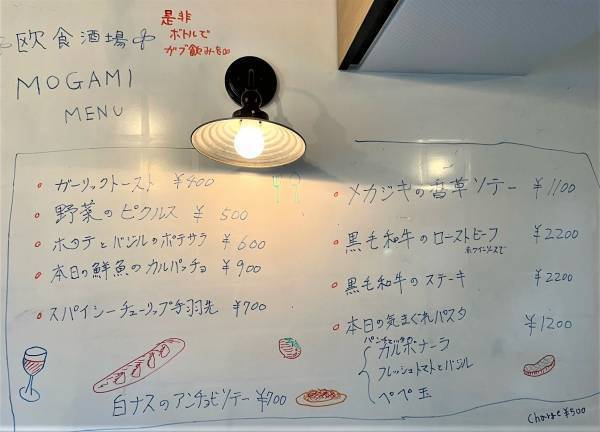 欧食酒場
MOGAMI
MENU
是非
ボトルで
ガブ飲みを
ガーリックトースト ¥400
野菜のピクルス ¥500
ホタテとバジルのポテサラ ¥600
本日の鮮魚のカルパッチョ ¥900
スパイシーチューリップ手羽先 ¥700
白ナスのアンチョビソテー ¥700
メカジキの香草ソテー ¥1100
黒毛和牛のローストビーフ ¥2200
赤ワインソースで
黒毛和牛のステーキ ¥2200
本日の気まぐれパスタ ¥1200
パンチェッタの
カルボナーラ
フレッシュトマトとバジル
ペペ玉
Charge ¥500